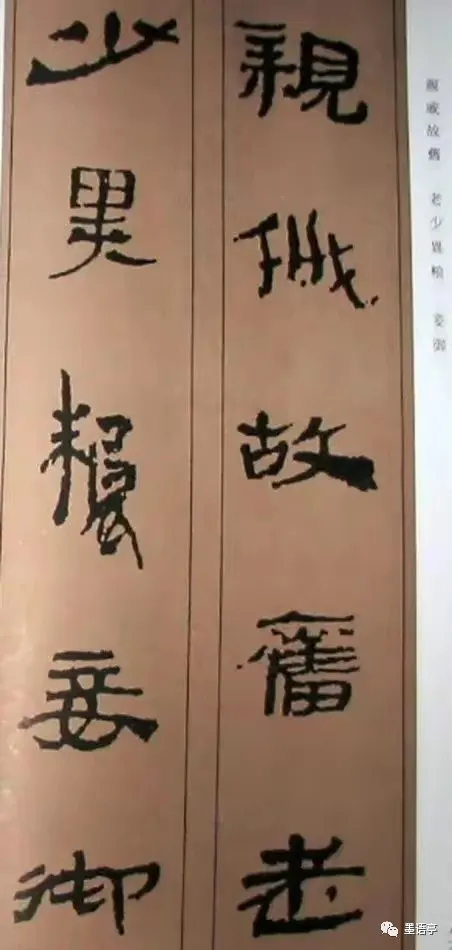 親戚故舊老
少異糧妾御
親戚故舊 老少異糧 妾御
墨语亭